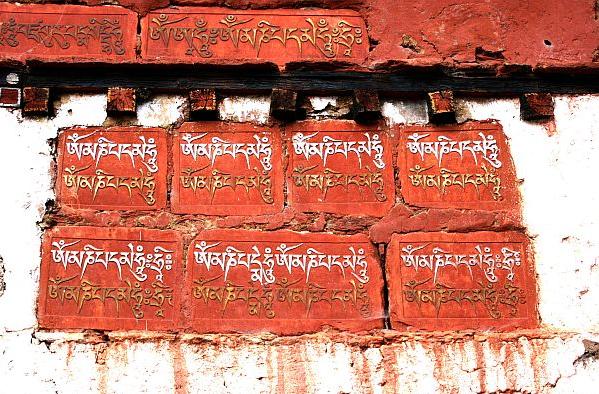 ཨོཾ་མ་ཎི་པདྨེ་ཧཱུྃ༔ ཨོཾ་མ་ཎི་པད་མེ་ཧཱུྃ་ཧྲཱིཿ
ཨོཾ་མ་ཎི་པད་མེ་ཧཱུྃ
ཨོཾ་མ་ཎི་པད་མེ་ཧཱུྃ
ཨོཾ་མ་ཎི་པད་མེ་ཧཱུྃ
ཨོཾ་མ་ཎི་པད་མེ་ཧཱུྃ
ཨོཾ་མ་ཎི་པད་མེ་ཧཱུྃ
ཨོཾ་མ་ཎི་པད་མེ་ཧཱུྃ
ཨོཾ་མ་ཎི་པད་མེ་ཧཱུྃ
ཨོཾ་མ་ཎི་པད་མེ་ཧཱུྃ
ཨོཾ་མ་ཎི་པད་མེ་ཧཱུྃ་ཧྲཱིཿ
ཨོཾ་མ་ཎི་པད་མེ་ཧཱུྃ་ཧྲཱིཿ
ཨོཾ་མ་ཎི་པདྨེ་ཧཱུྃ་ཨོཾ་མ་ཎི་པད་མེ་ཧཱུྃ
ཨོཾ་མ་ཎི་པདྨེ་ཧཱུྃ་ཨོཾ་མ་ཎི་པད་མེ་ཧཱུྃ
ཨོཾ་མ་ཎི་པད་མེ་ཧཱུྃ་ཧྲཱིཿ
ཨོཾ་མ་ཎི་པད་མེ་ཧཱུྃ་ཧྲཱིཿ